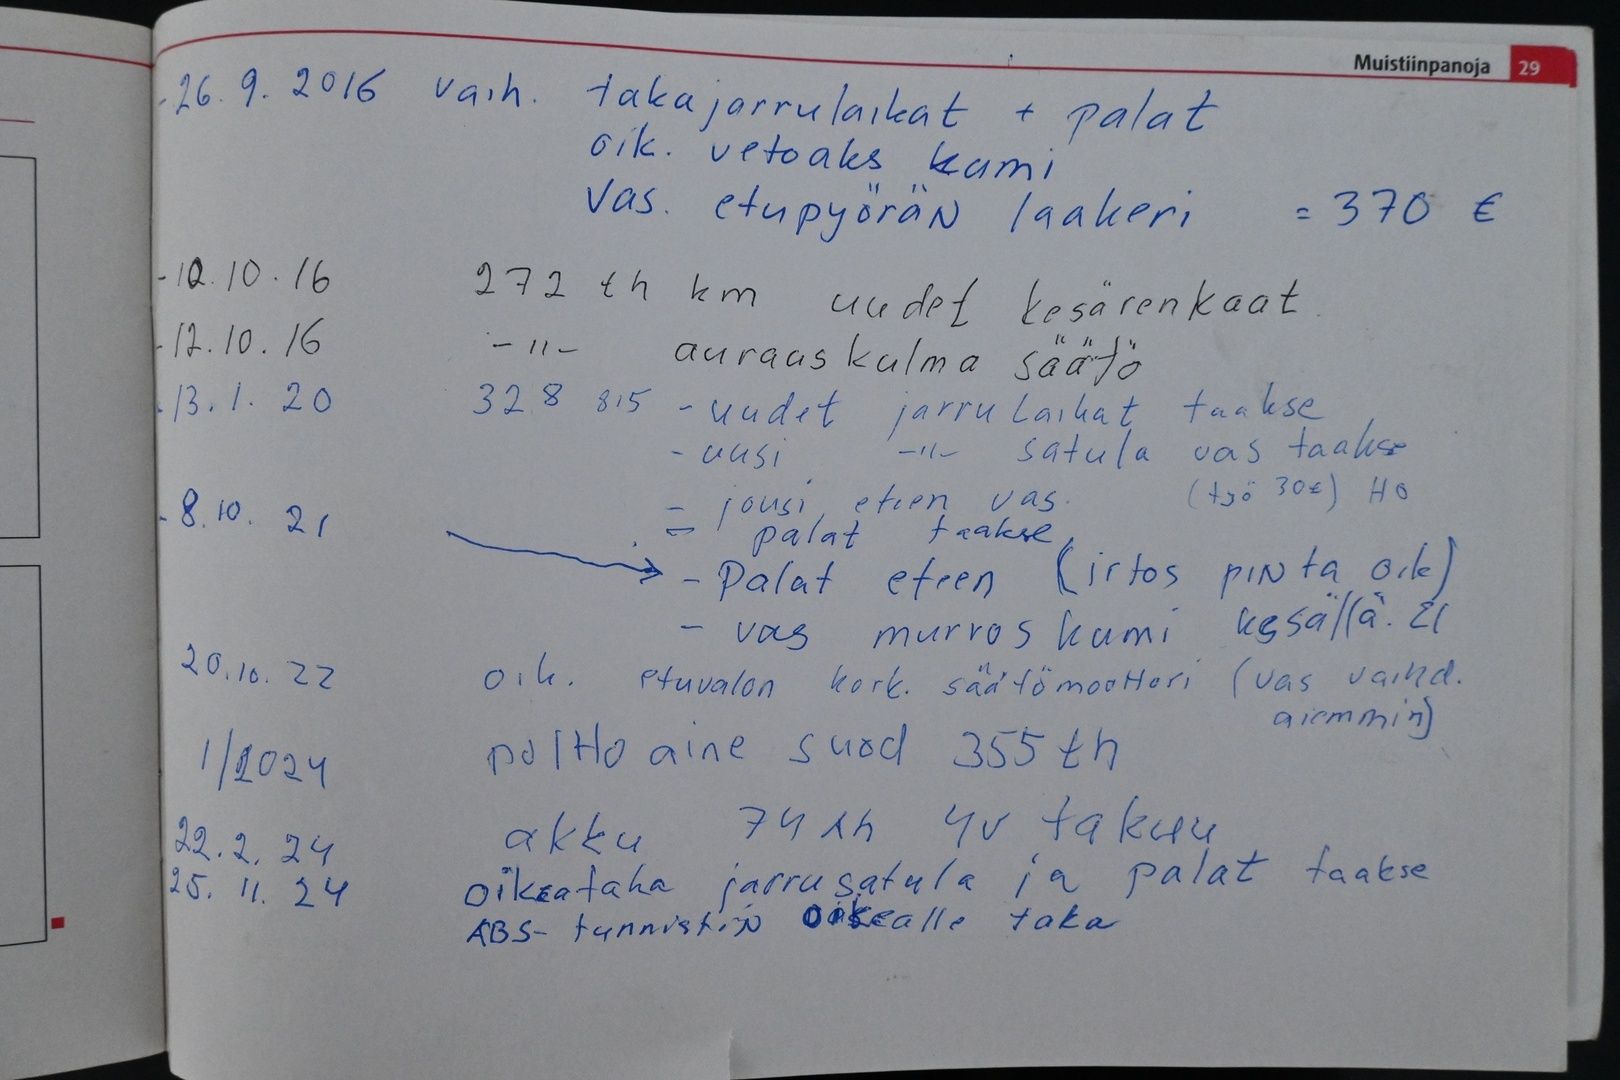 Muistiinpanoja 29
-26.9.2016 vaih. takajarrulaikat + palat
oik. vetoaks kumi
vas. etupyörän laakeri = 370 €
-10.10.16 272 th km uudet kesärenkaat
-12.10.16 -"- auraaskulma säätö
-13.1.20 328 815 - uudet jarrulaikat taakse
- uusi -"- satula vas taakse
- jousi eteen vas. (työ 30€) HO
-8.10.21 = palat taakse
- Palat eteen (irtos pinta oik)
- vas murroskumi kesällä. 21
20.10.22 oik. etuvalon kork. säätömoottori (vas vaihd.
aiemmin)
1/2024 polttoaine suod 355 th
22.2.24 akku 74 Ah 4v takuu
25.11.24 oikeataka jarrusatula ja palat taakse
ABS-tunnistin oikealle taka